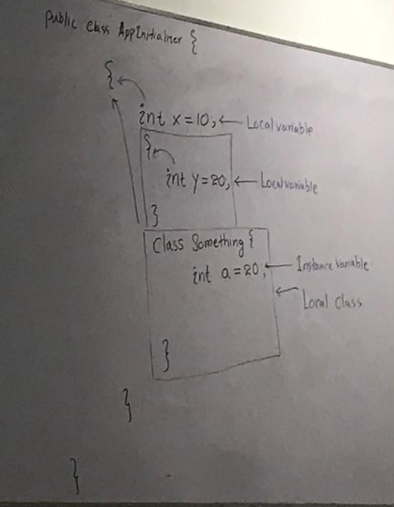 public class AppInitializer {
{
int x=10; ← Local variable
{
int y=20; ← Local variable
}
Class Something {
int a=20; ← Instance variable
← Local Class
}
}
}